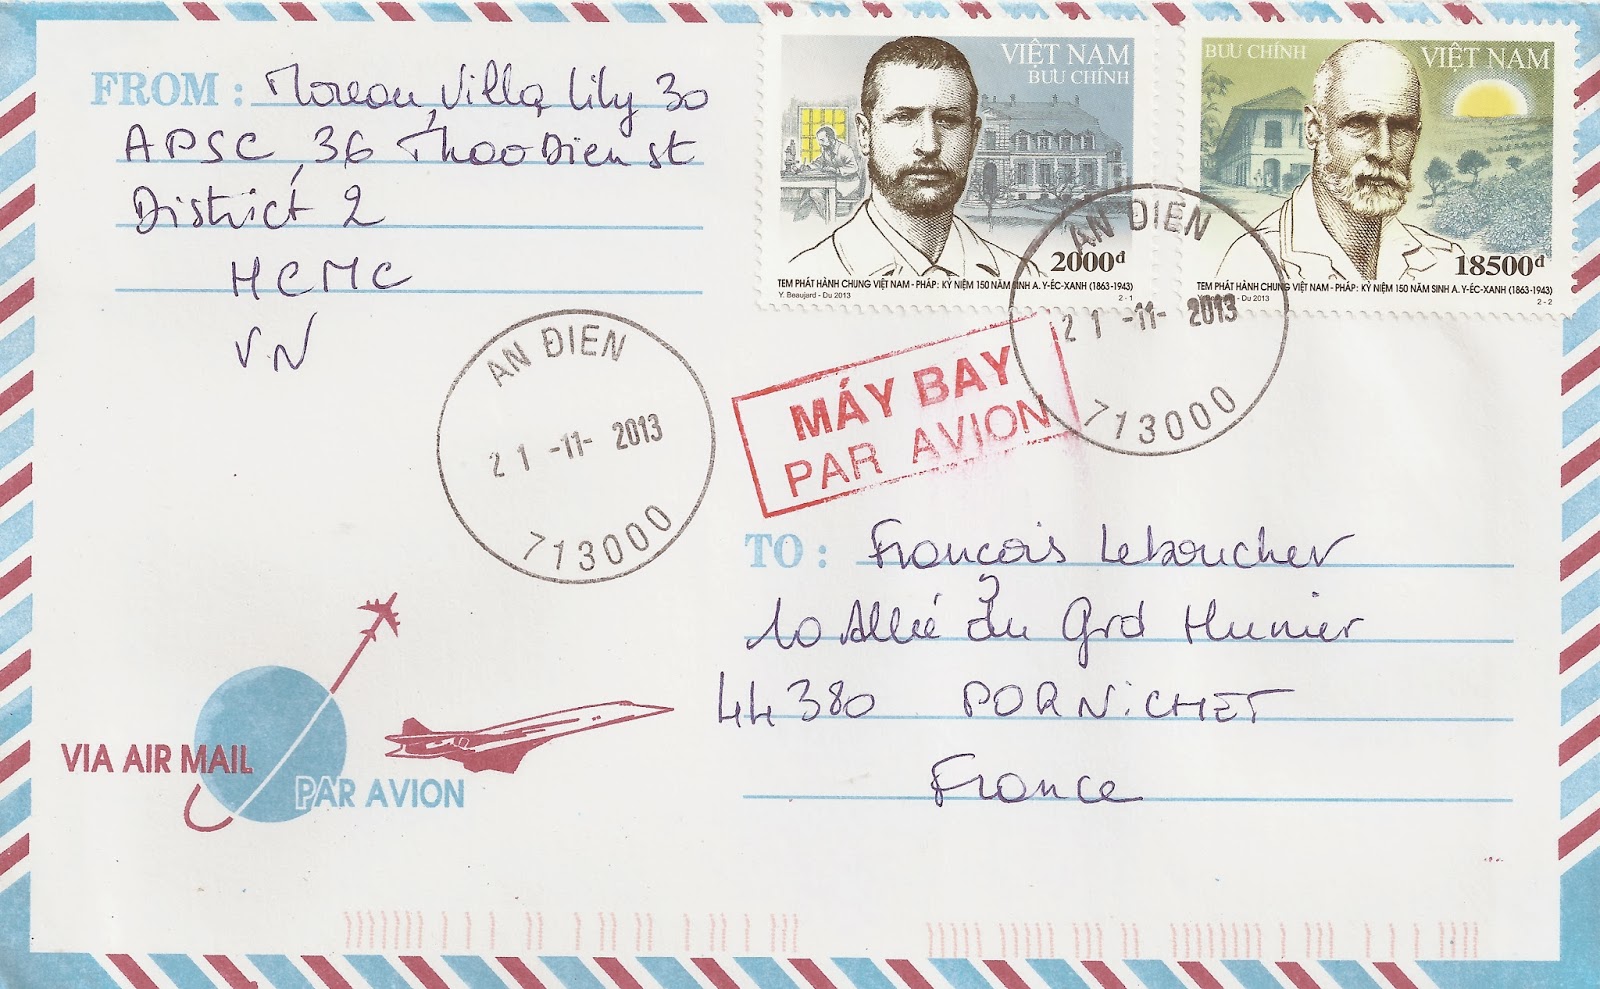 FROM : Moreau, Villa Lily 30
APSC, 36 Thao Dien st
District 2
HCMC
VN
VIỆT NAM
BƯU CHÍNH
2000đ
TEM PHÁT HÀNH CHUNG VIỆT NAM - PHÁP: KỶ NIỆM 150 NĂM SINH A. Y-ÉC-XANH (1863-1943)
Y. Beaujard - Du 2013
2 - 1
BƯU CHÍNH
VIỆT NAM
18500đ
TEM PHÁT HÀNH CHUNG VIỆT NAM - PHÁP: KỶ NIỆM 150 NĂM SINH A. Y-ÉC-XANH (1863-1943)
- Du 2013
2 - 2
AN ĐIEN
21 -11- 2013
713000
AN ĐIEN
21 -11- 2013
713000
MÁY BAY
PAR AVION
TO : François Leboucher
10 Allée du Grd Hunier
44380 PORNICHET
France
VIA AIR MAIL
PAR AVION